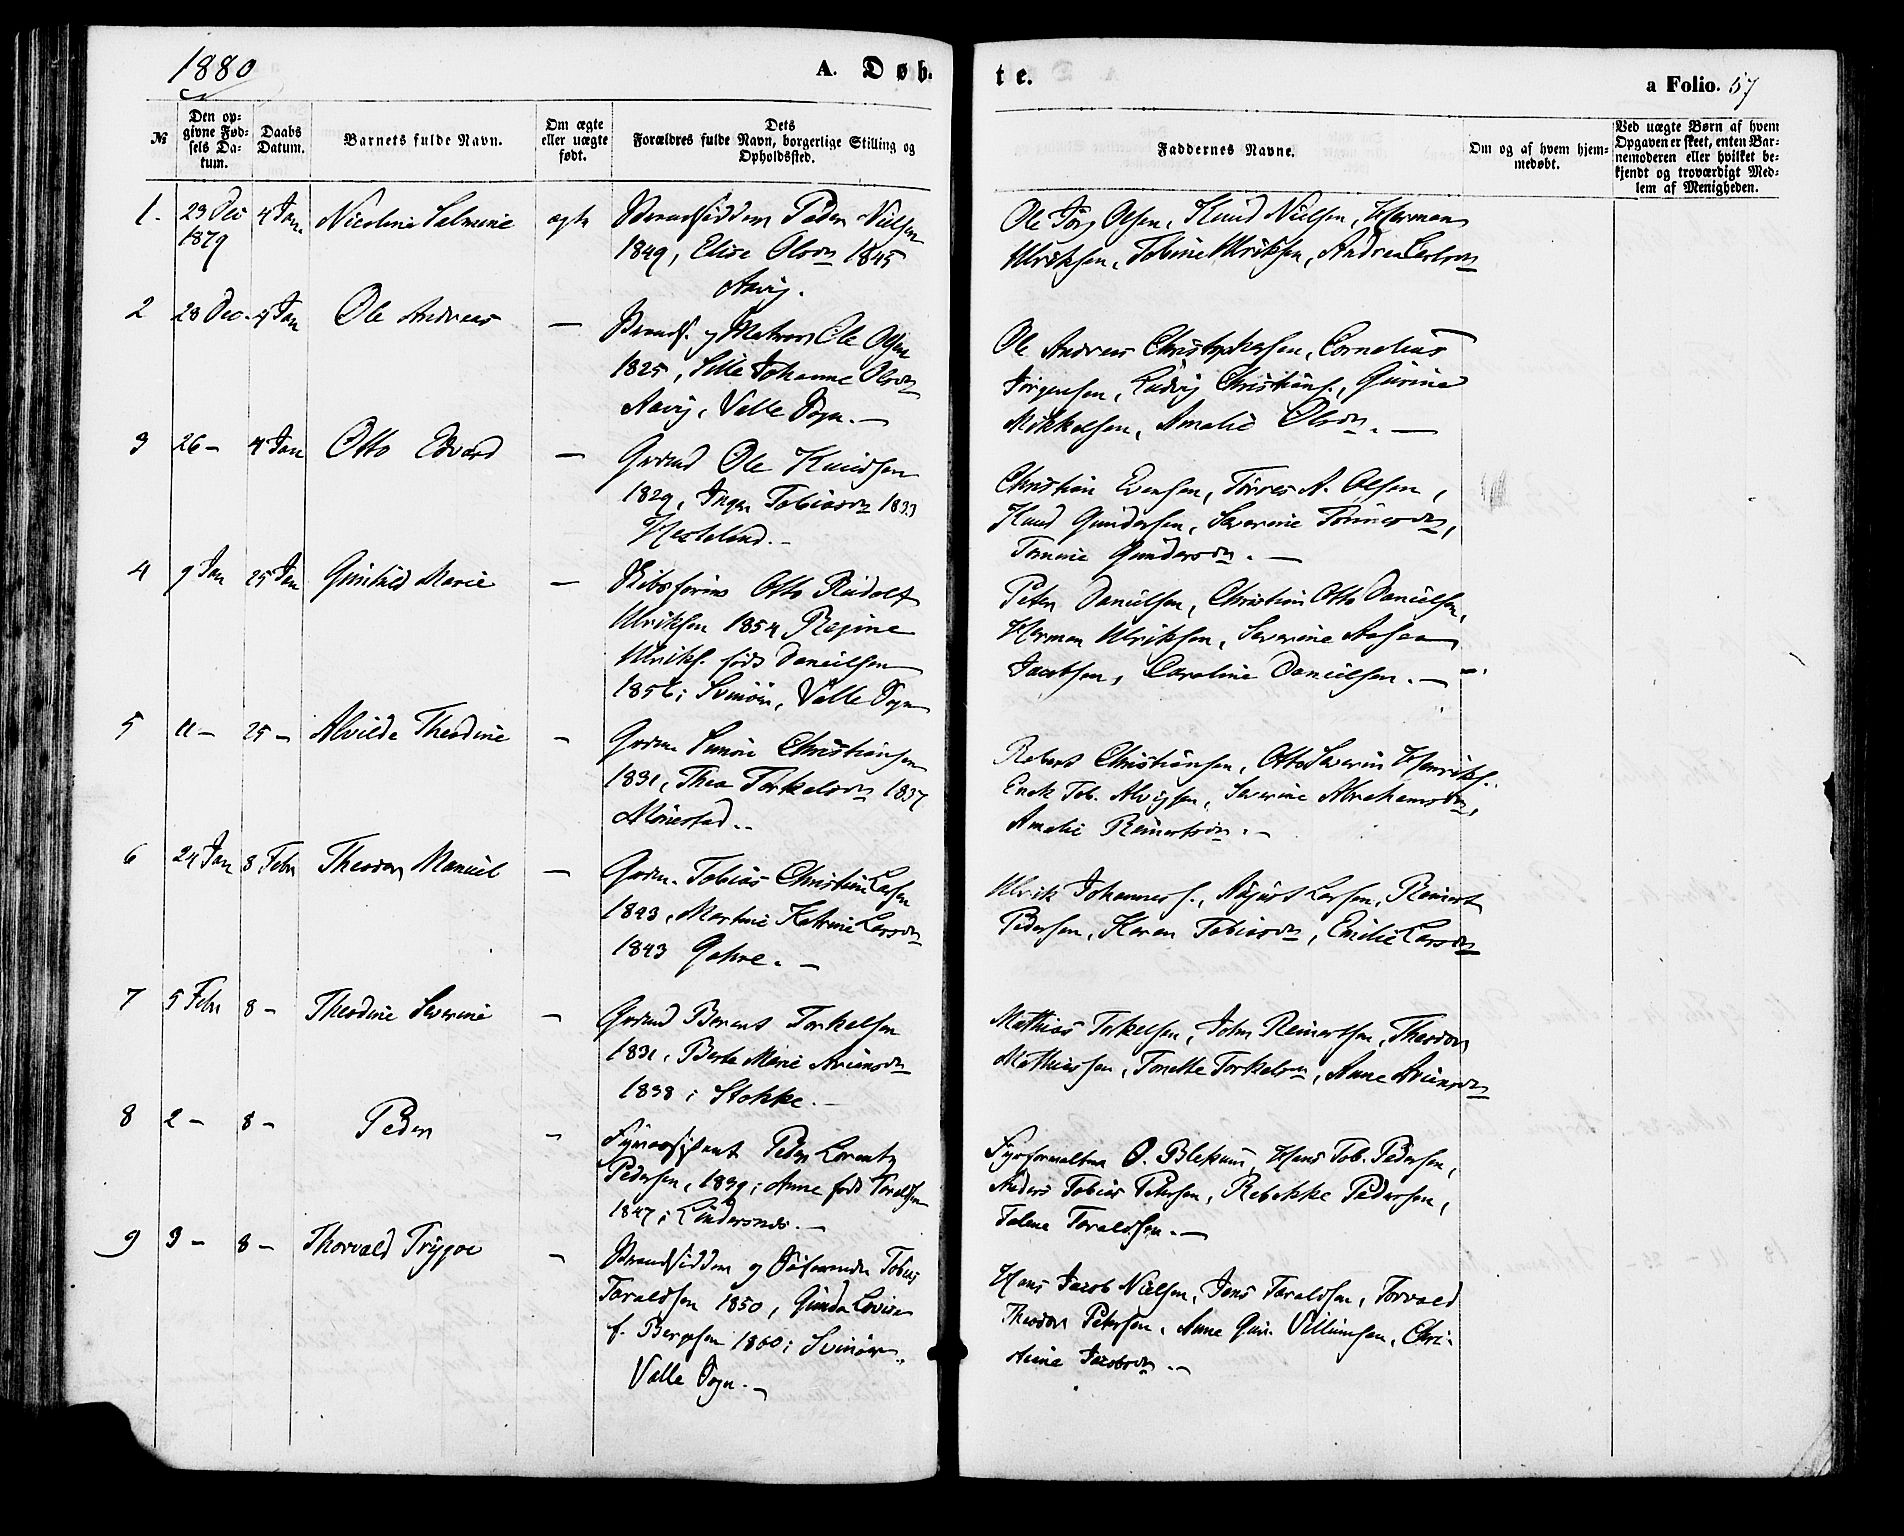 1880
A. Døb-
te.
a Folio. 57
№
Den op-
givne Fød-
sels Da-
tum.
Daabs
Datum.
Barnets fulde Navn.
Om ægte
eller uægte
født.
Dets
Forældres fulde Navn, borgerlige Stilling og
Opholdssted.
Faddernes Navne.
Om og af hvem hjem-
medøbt.
Ved uægte Børn af hvem
Opgaven er skeet, enten Bar-
nemoderen eller hvilket be-
kjendt og troværdigt Med-
lem af Menigheden.
1. 23 Dec 4 Jan. Nicoline ægte Peder Nilsen
1879 1849, Elise Olsdn 1845
Aavig.
Ole Jørg Olsen, Knud Nielsen, Herman
Ulriksen, Tobine Ulriksen, Andrea
2 28 Dec. 4 Jan Ole Andreas — Strands. og Matros Ole Olsen
1825, Johanne Olsdn
Aavig, Valle Sogn. —
Ole Andreas Christophersen, Cornelius
Jörgensen, Ludvig Christians., Gurine
Mikkelsen, Amalie Olsdn. —
3 26 — 4 Jan Otto Edvard — Grdmd Ole Knudsen
1829, Inger Tobiasdn 1833
Hesteland. —
Christian Evensen, Törres A. Olsen,
Knud Gundersen, Severine Tönnesdn,
Gundersdn. —
4 9 Jan 25 Jan Gunhild Marie — Skibsförer Otto Rudolf
Ulriksen 1854 Regine
Ulriks. föd Danielsen
1856 i Svinör, Valle Sogn
Peter Danielsen, Christian Otto Danielsen,
Herman Ulriksen, Severine
Jacobsen, Caroline Danielsen. —
5 11 — 25 — Alvilde Theodine — Grdm. Simon Christiansen
1831, Thea Torkelsdn 1837
Mönestad. —
Robert Christiansen, Otto Severin Henriks.
Enok Tob. Severine Abrahamsdn,
Amalie Reinertsdn. —
6 24 Jan 8 Febr Theodor Manuel — Grdm. Tobias Christian Larsen
1843, Martine Katrine Larsdn
1843 Gahre. —
Ulrik Johannes., August Larsen, Reinert
Pedersen, Karen Tobiasdn, Emilie Larsdn
7 5 Febr 8 — Theodine Severine — Grdmd Berent Torkelsen
1831, Berte Marie
1838 i Stokke. —
Mathias Torkelsen, John Reinertsen, Theodor
Mathiassen, Tonette Torkelsdn, Anne
8 2 — 8 — Peder — Fyrassistent Peder Lorentz
Pedersen, 1839 i Anne föd Taraldsen
1847 i Lindesnes. —
Fyrforvalter O. Hans Tob. Pedersen,
Anders Tobias Petersen, Rebekke Pedersen,
Taraldsen. —
9 3 — 8 — Thorvald Trÿgve — Strandsidder og Tobias
Taraldsen 1850, Gunda Lovise
f. Bergesen 1860 i Svinör.
Valle Sogn. —
Hans Jacob Nielsen, Jens Taraldsen, Torvald
Theodor Petersen, Anne Gun. Villumsen, Chri-
stiane Jacobsdn. —